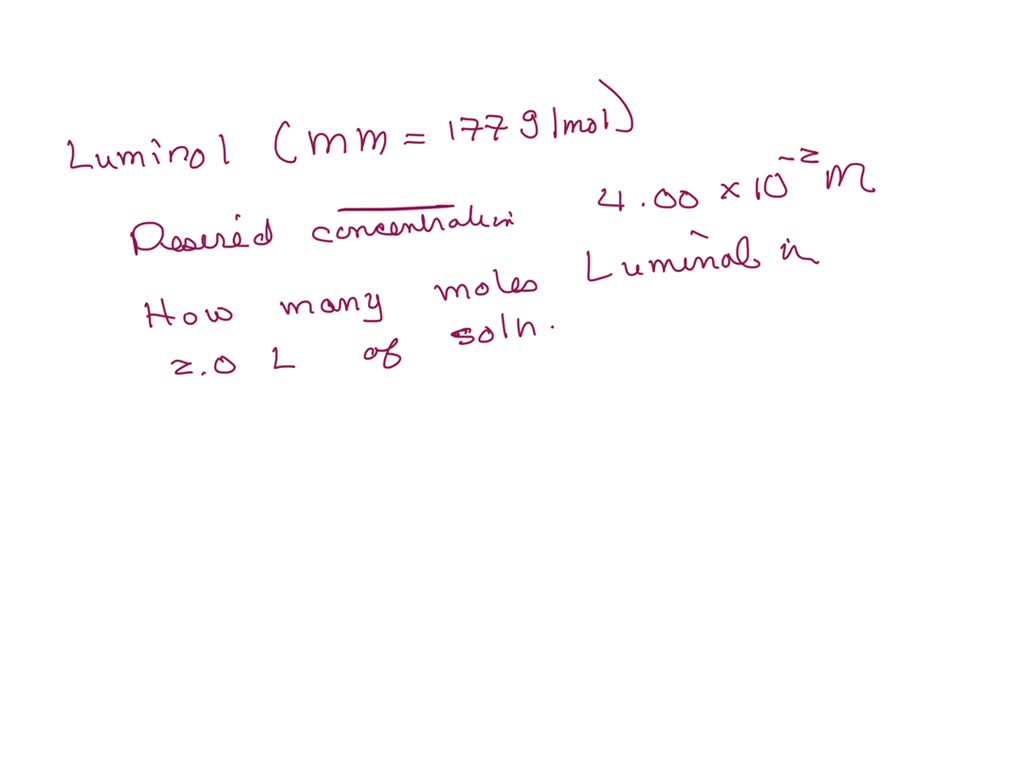 Luminol (mm = 177 g/mol)
Desired concentration 4.00 × 10⁻² M
How many moles Luminal in
2.0 L of soln.